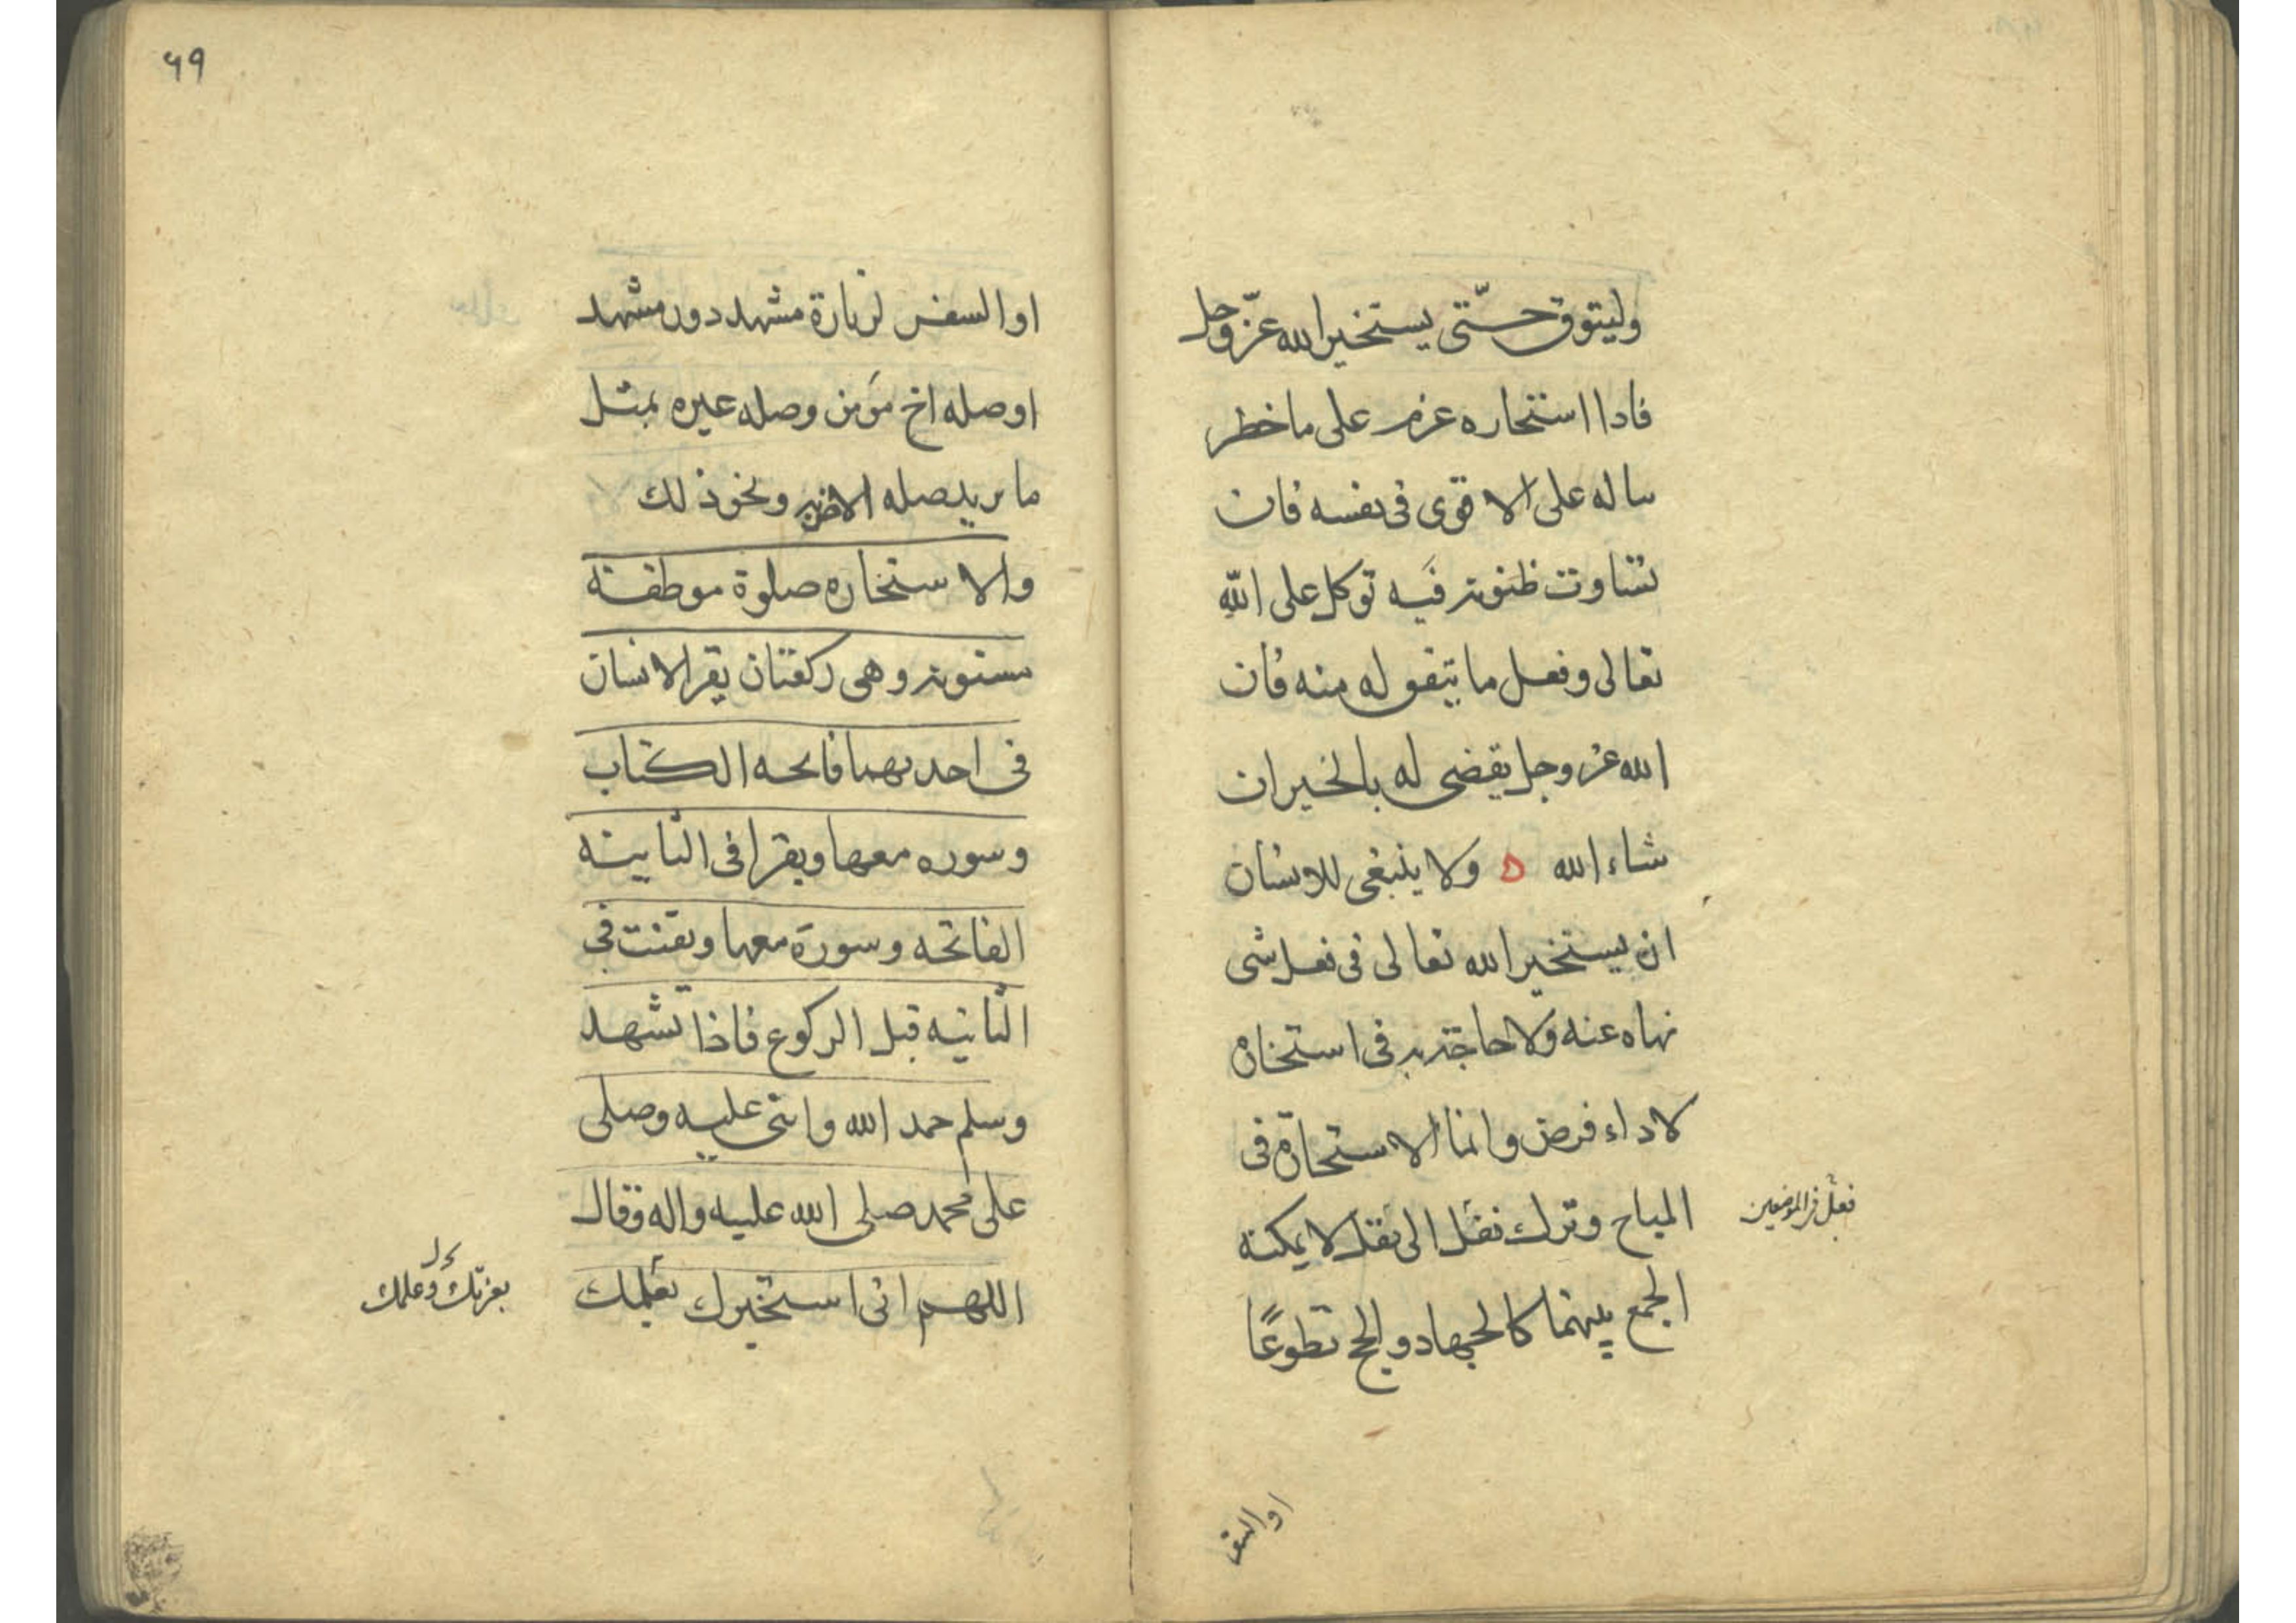 وليتوق حتّى يستخير الله عزّ وجل
فاذا استخاره عزم على ما خطر
بباله على الاقوى في نفسه فان
تساوت ظنونه فيه توكل على الله
تعالى وفعل ما يتفق له منه فان
الله عز وجل يقضى له بالخير ان
شاء الله ه ولا ينبغى للانسان
ان يستخير الله تعالى في فعل شى
نهاه عنه ولا حاجة به في استخارة
لاداء فرض وانما الاستخارة في
المباح وترك نفل الى نفل لا يمكنه
فعل في الموضعين
الجمع بينهما كالجهاد والحج تطوعًا
او السفر
٦٩
او السفر لزيارة مشهد دون مشهد
او صله اخ مؤمن وصله غيره بمثل
ما يريد صله الاخر به ونحو ذلك
والاستخاره صلوة موظفة
مسنونه وهى ركعتان يقرا الانسان
في احديهما فاتحه الكتاب
وسوره معها ويقرا في الثانيه
الفاتحه وسورة معها ويقنت في
الثانيه قبل الركوع فاذا تشهد
وسلم حمد الله واثنى عليه وصلى
على محمد صلى الله عليه واله وقال
اللهم انى استخيرك بعلمك
بعزتك وعلمك